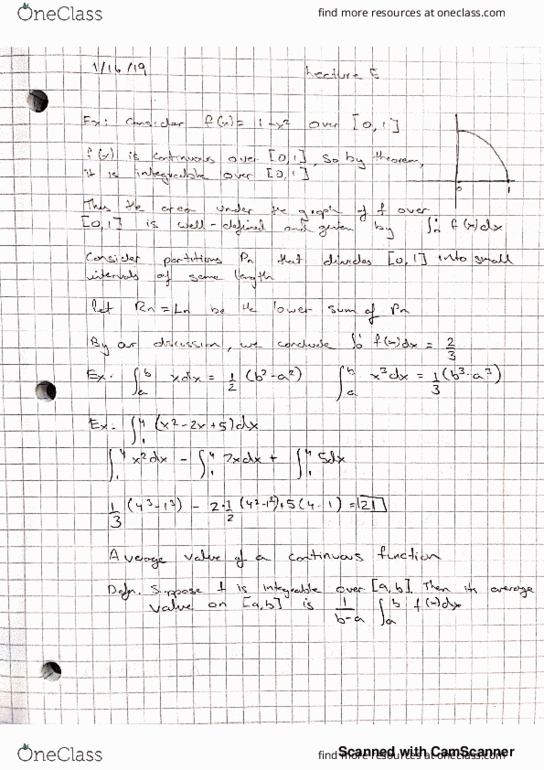 OneClass
find more resources at oneclass.com
1/16/19 Lecture 5
Ex: Consider f(x) = 1-x² over [0,1]
f(x) is continuous over [0,1], so by theorem,
it is integrable over [0,1]
0 1
Thus the area under the graph of f over
[0,1] is well-defined and given by ∫₀¹ f(x)dx
Consider partitions Pn that divides [0,1] into small
intervals of same length
Let Rn = Ln be the lower sum of Pn
By our discussion, we conclude ∫₀¹ f(x)dx = 2/3
Ex: ∫ₐᵇ xdx = 1/2 (b²-a²) ∫ₐᵇ x²dx = 1/3 (b³-a³)
Ex: ∫₁⁴ (x²-2x+5)dx
∫₁⁴ x²dx - ∫₁⁴ 2xdx + ∫₁⁴ 5dx
1/3 (4³-1³) - 2·1/2 (4²-1²)+5(4-1) = 21
Average value of a continuous function
Defn. Suppose f is integrable over [a,b]. Then its average
value on [a,b] is 1/b-a ∫ₐᵇ f(x)dx
OneClass
find more resources at oneclass.com
Scanned with CamScanner